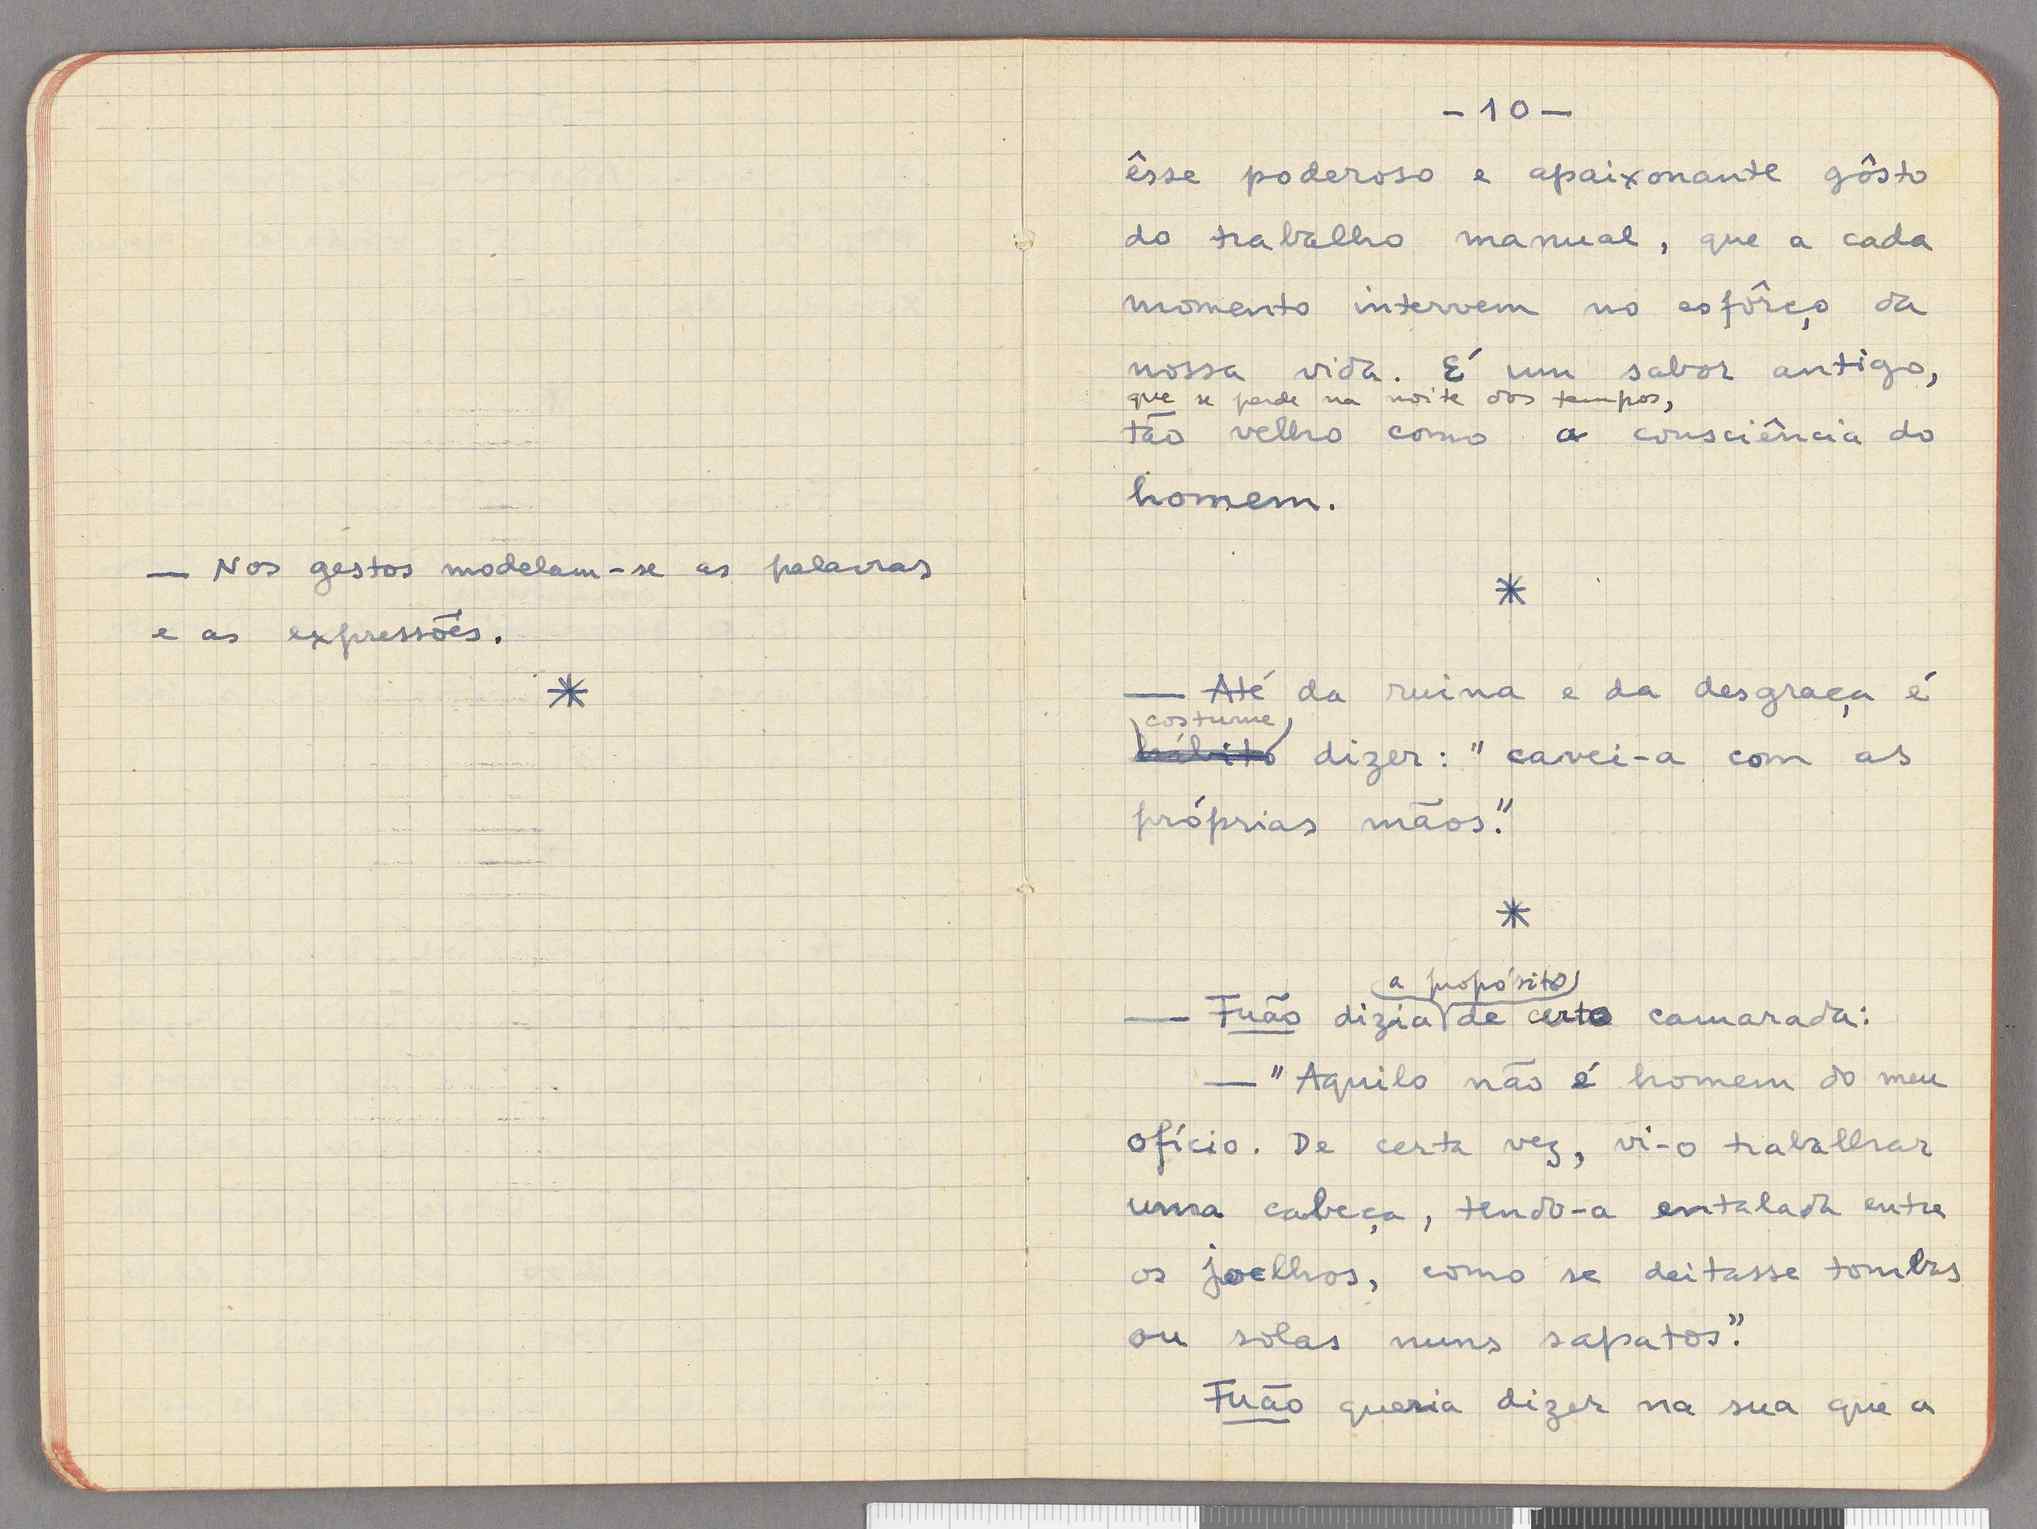 — Nos gestos modelam-se as palavras
e as expressões.
*
- 10 -
êsse poderoso e apaixonante gôsto
do trabalho manual, que a cada
momento intervem no esfôrço da
nossa vida. É um sabor antigo,
que se perde na noite dos tempos,
tão velho como a consciência do
homem.
*
— Até da ruina e da desgraça é
costume
hábito dizer: "cavei-a com as
próprias mãos".
*
a propósito
— Fuão dizia de certo camarada:
— "Aquilo não é homem do meu
ofício. De certa vez, vi-o trabalhar
uma cabeça, tendo-a entalada entre
os joelhos, como se deitasse tombas
ou solas nuns sapatos".
Fuão queria dizer na sua que a